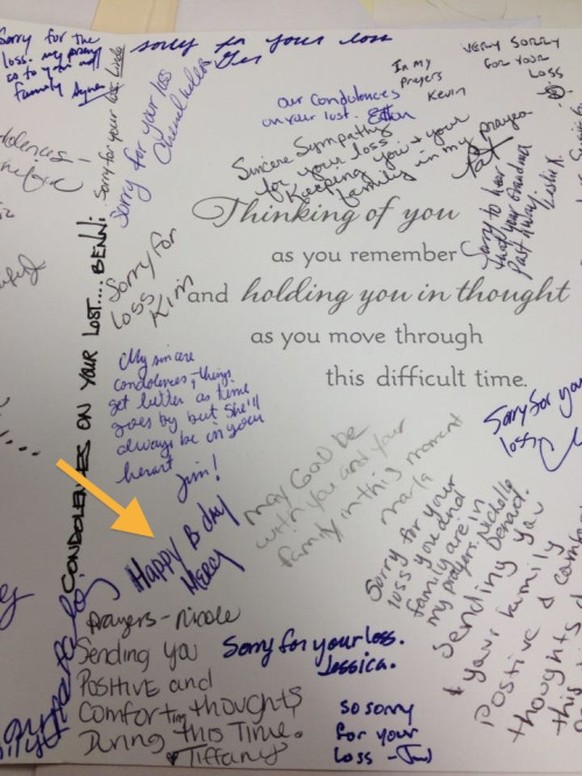 Sorry for the
loss. my prayers
go to you and
family
Sorry for your lost. Linda
sorry for your loss
Sorry for your loss
In my
Prayers
Kevin
VERY SORRY
FOR YOUR
LOSS
our Condolences
on your lost.
Sincere Sympathy
for your loss
Keeping you & your
family in my prayers
Pat
Sorry to hear
that your Grandma
Past Away
Thinking of you
as you remember
and holding you in thought
as you move through
this difficult time.
CONDOLENCES ON YOUR LOST.... BENN:
Sorry for
loss
Kim
My sincere
condolences, things
get better as time
goes by but she'll
always be in your
heart
Jim!
Sorry for your
loss
May God be
with you and your
family in this moment
Marla
Happy B day
Mercy
Sorry for your
loss you and
family are in
my prayers. Nichelle
Sending you
& your family
positive &
thoughts
this
Prayers - Nicole
Sending you
Positive and
Comforting thoughts
During this Time.
Tiffany
Sorry for your loss.
Jessica.
so sorry
for your
loss